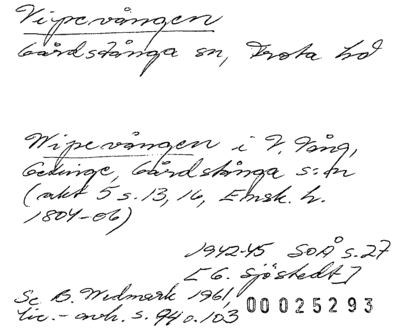 Vipevången
Gårdstånga sn, Frosta hd
Wipevången i V. Vång,
Getinge, Gårdstånga s:n
(akt 5 s. 13, 16, Ensk. h.
1804-06)
1942-45 SOÅ s. 27
[G. Sjöstedt]
Se B. Widmark 1961,
lic.-avh. s. 94 o. 103
00025293